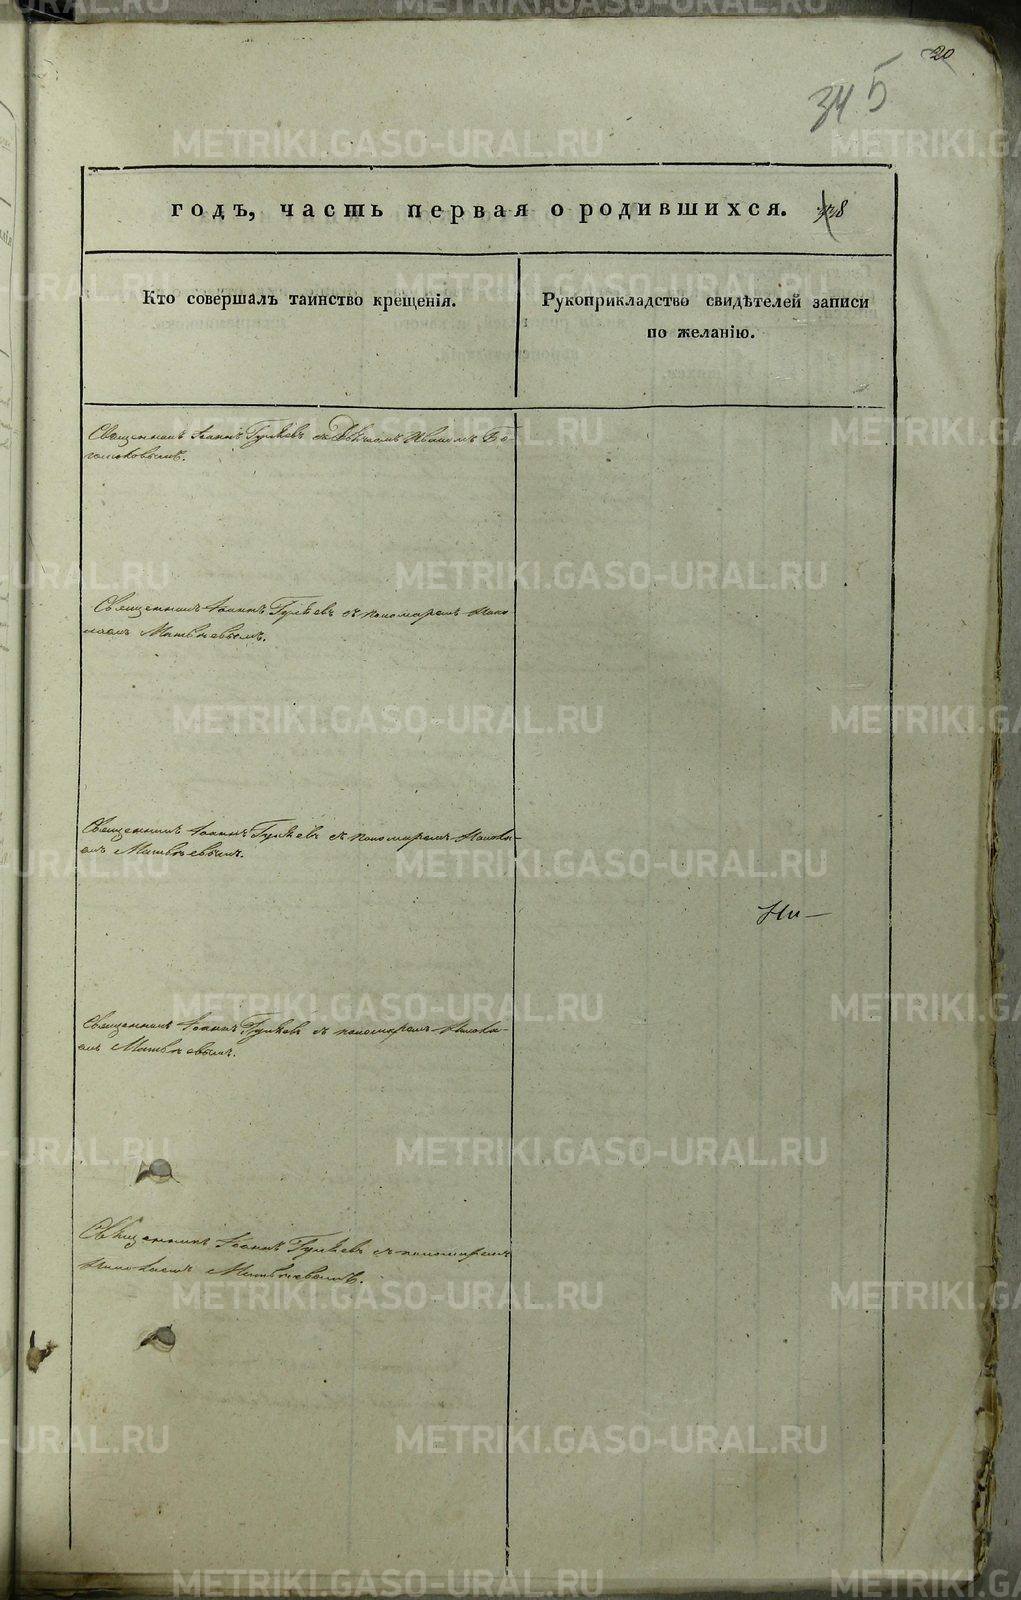 20
34 5
годъ, часть первая о родившихся.
Кто совершалъ таинство крещенія.
Рукоприкладство свидѣтелей записи
по желанію.
Священникъ Іоаннъ Гуляевъ съ Иваномъ
Священникъ Іоаннъ Гуляевъ съ пономаремъ Нико
лаемъ Матвѣевымъ.
Священникъ Іоаннъ Гуляевъ съ пономаремъ Никола-
емъ Матвѣевымъ.
Ни—
Священникъ Іоаннъ Гуляевъ съ пономаремъ Никола-
емъ Матвѣевымъ.
Священникъ Іоаннъ Гуляевъ съ пономаремъ
Николаемъ Матвѣевымъ.
METRIKI.GASO-URAL.RU